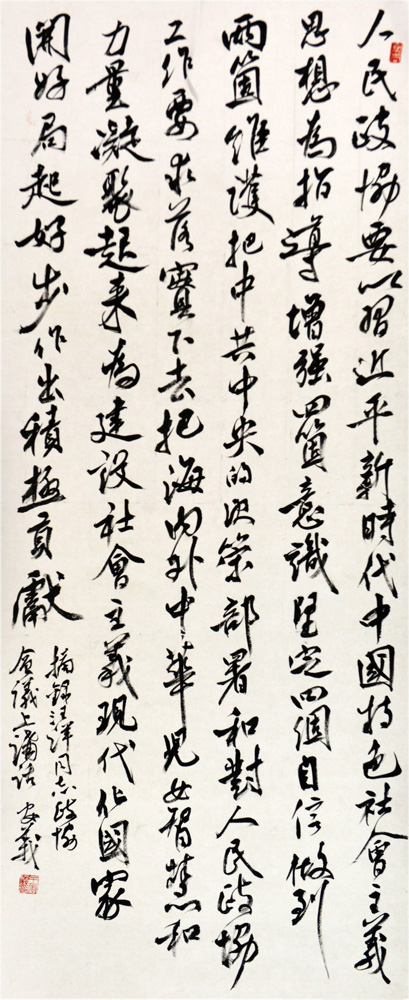 人民政協要以習近平新時代中國特色社會主義
思想為指導增强四箇意識堅定四個自信做到
兩箇維護把中共中央的決策部署和對人民政協
工作要求落實下去把海内外中華兒女智慧和
力量凝聚起来為建設社會主義現代化國家
開好局起好步作出積極貢獻
摘錄汪洋同志政協
會議上講話 安義